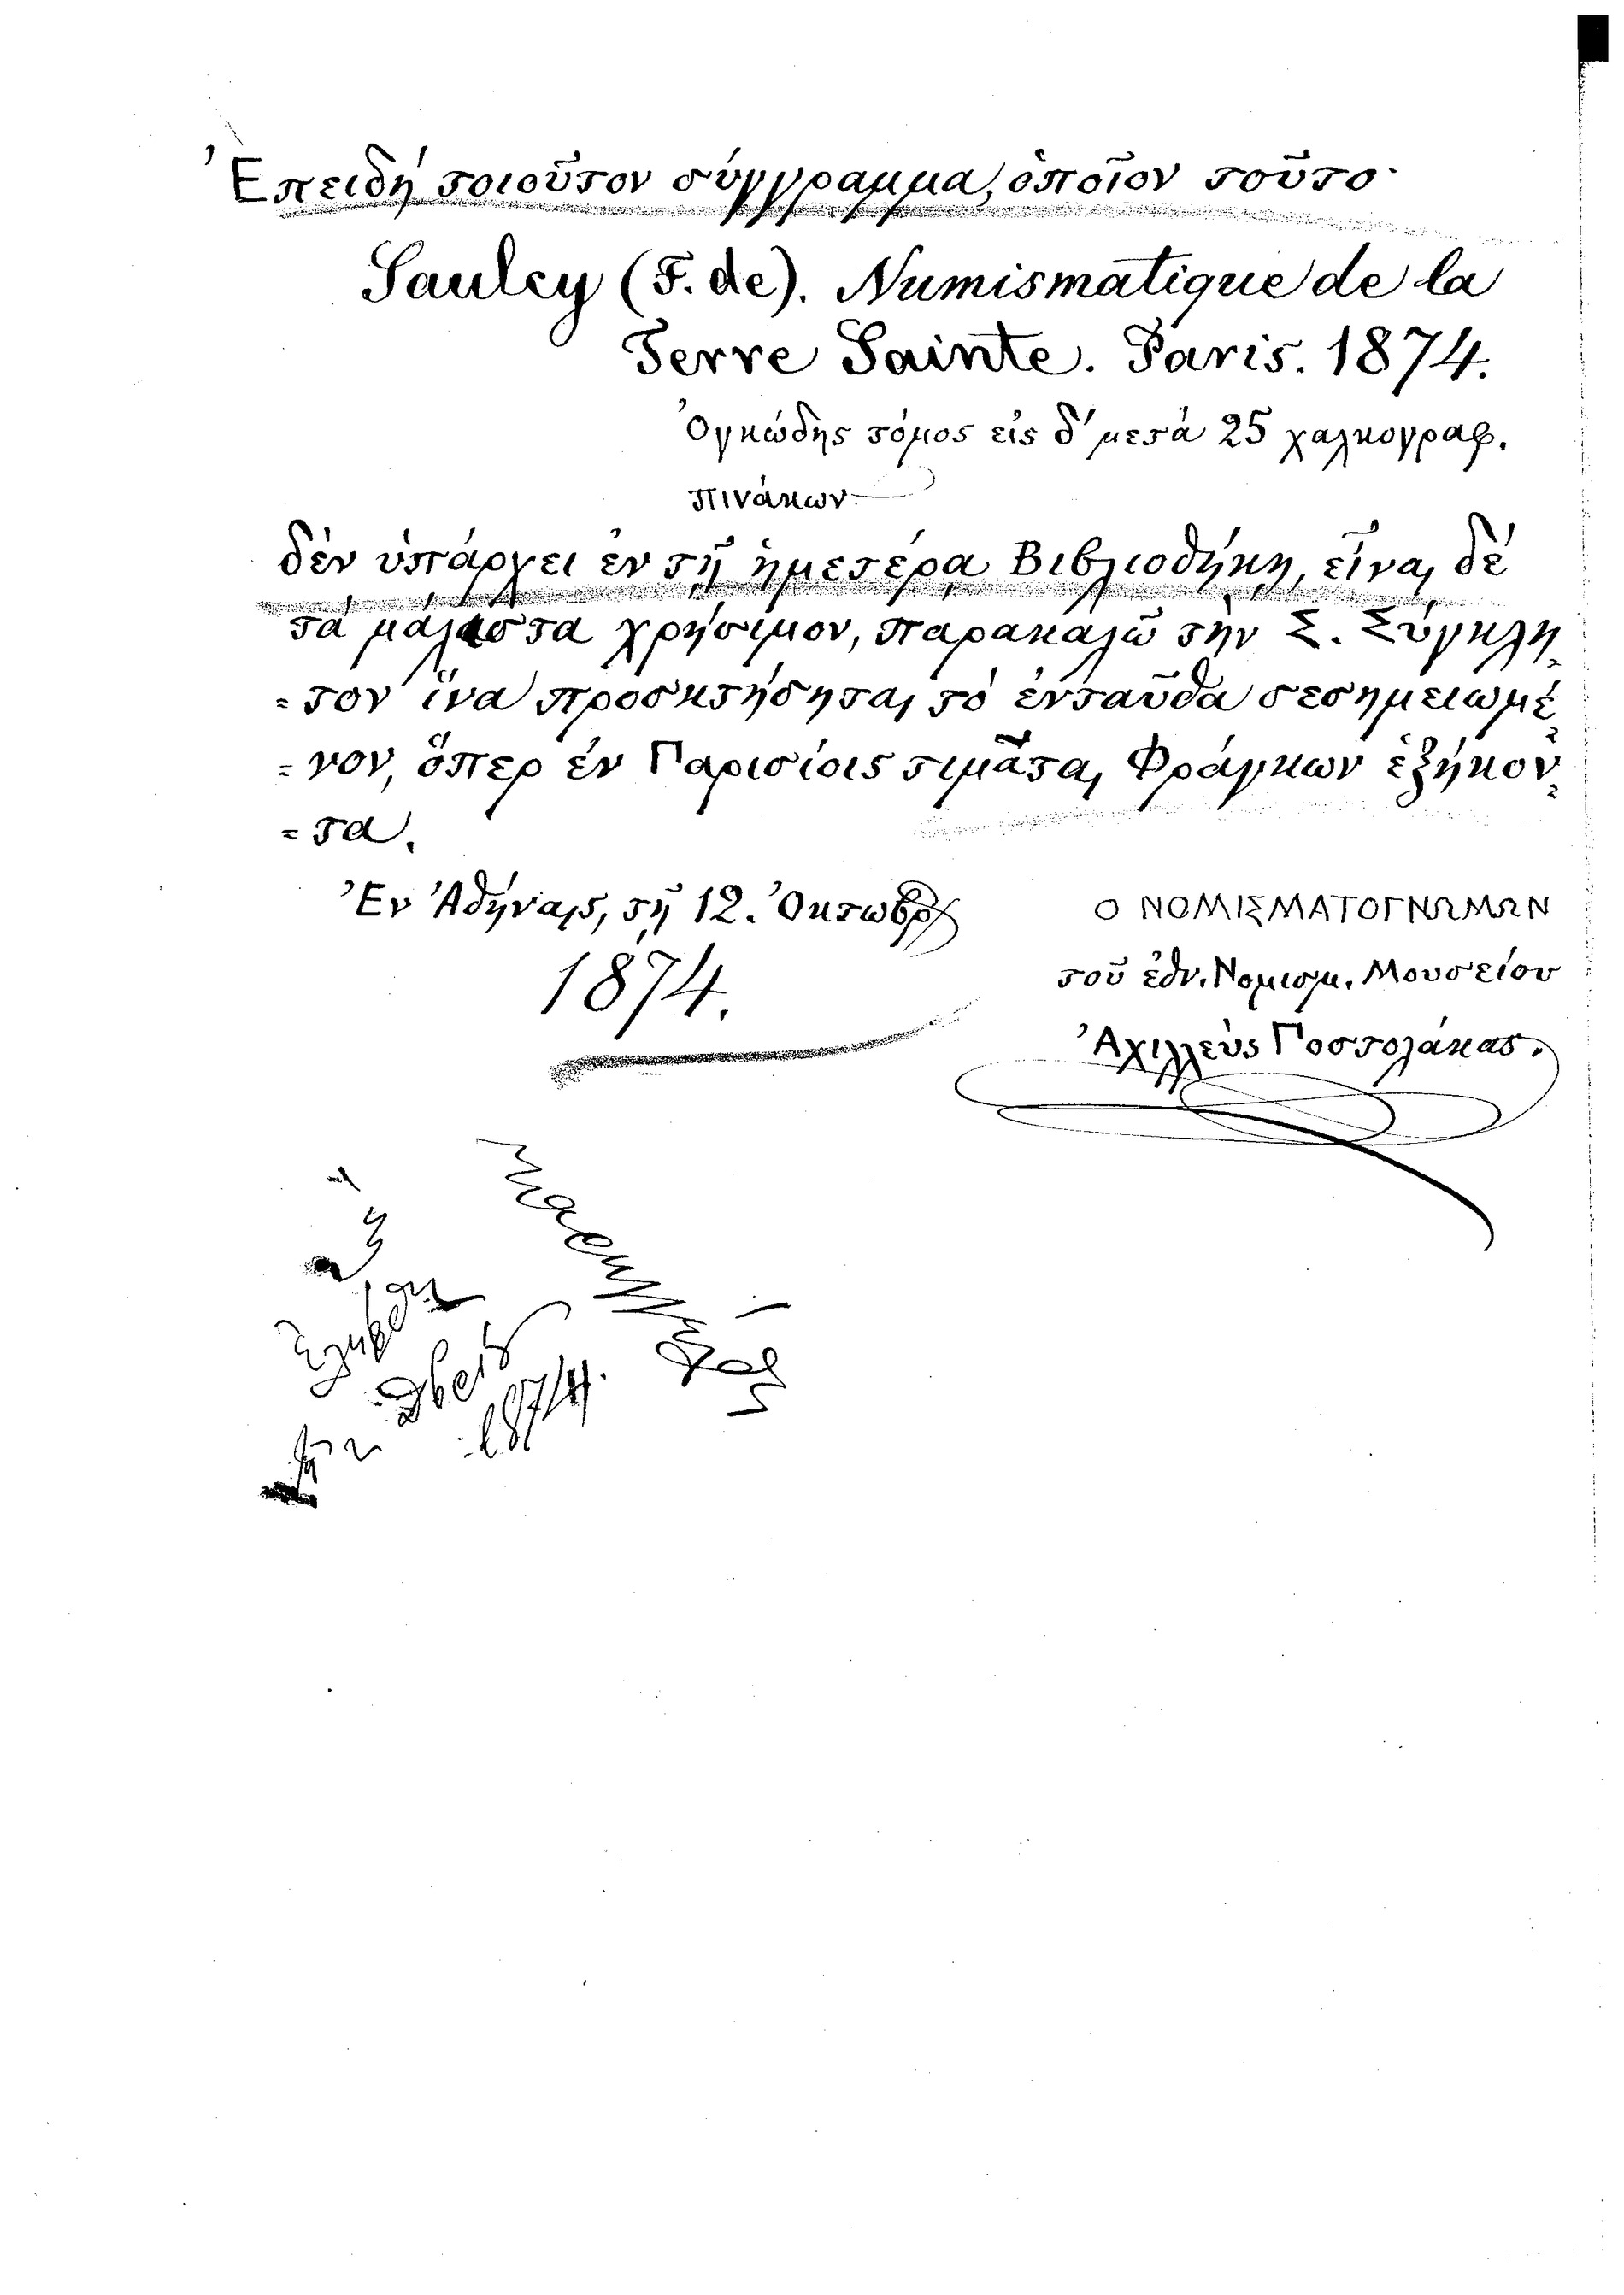 Ἐπειδή τοιοῦτον σύγγραμμα, ὁποῖον τοῦτο·
Saulcy (F. de). Numismatique de la
Terre Sainte. Paris. 1874.
Ὀγκώδης τόμος εἰς δ' μετά 25 χαλκογραφ.
πινάκων
δέν ὑπάρχει ἐν τῇ ἡμετέρᾳ Βιβλιοθήκῃ, εἶναι δέ
τά μάλιστα χρήσιμον, παρακαλῶ τήν Σ. Σύγκλη
=τον ἵνα προσκτήσηται τό ἐνταῦθα σεσημειωμέ
=νον, ὅπερ ἐν Παρισίοις τιμᾶται Φράγκων ἑξήκον
=τα.
Ἐν Ἀθήναις, τῇ 12. Ὀκτωβρ
1874.
Ο ΝΟΜΙΣΜΑΤΟΓΝΩΜΩΝ
τοῦ ἐθν. Νομισμ. Μουσείου
Ἀχιλλεύς Ποστολάκας.
1874.